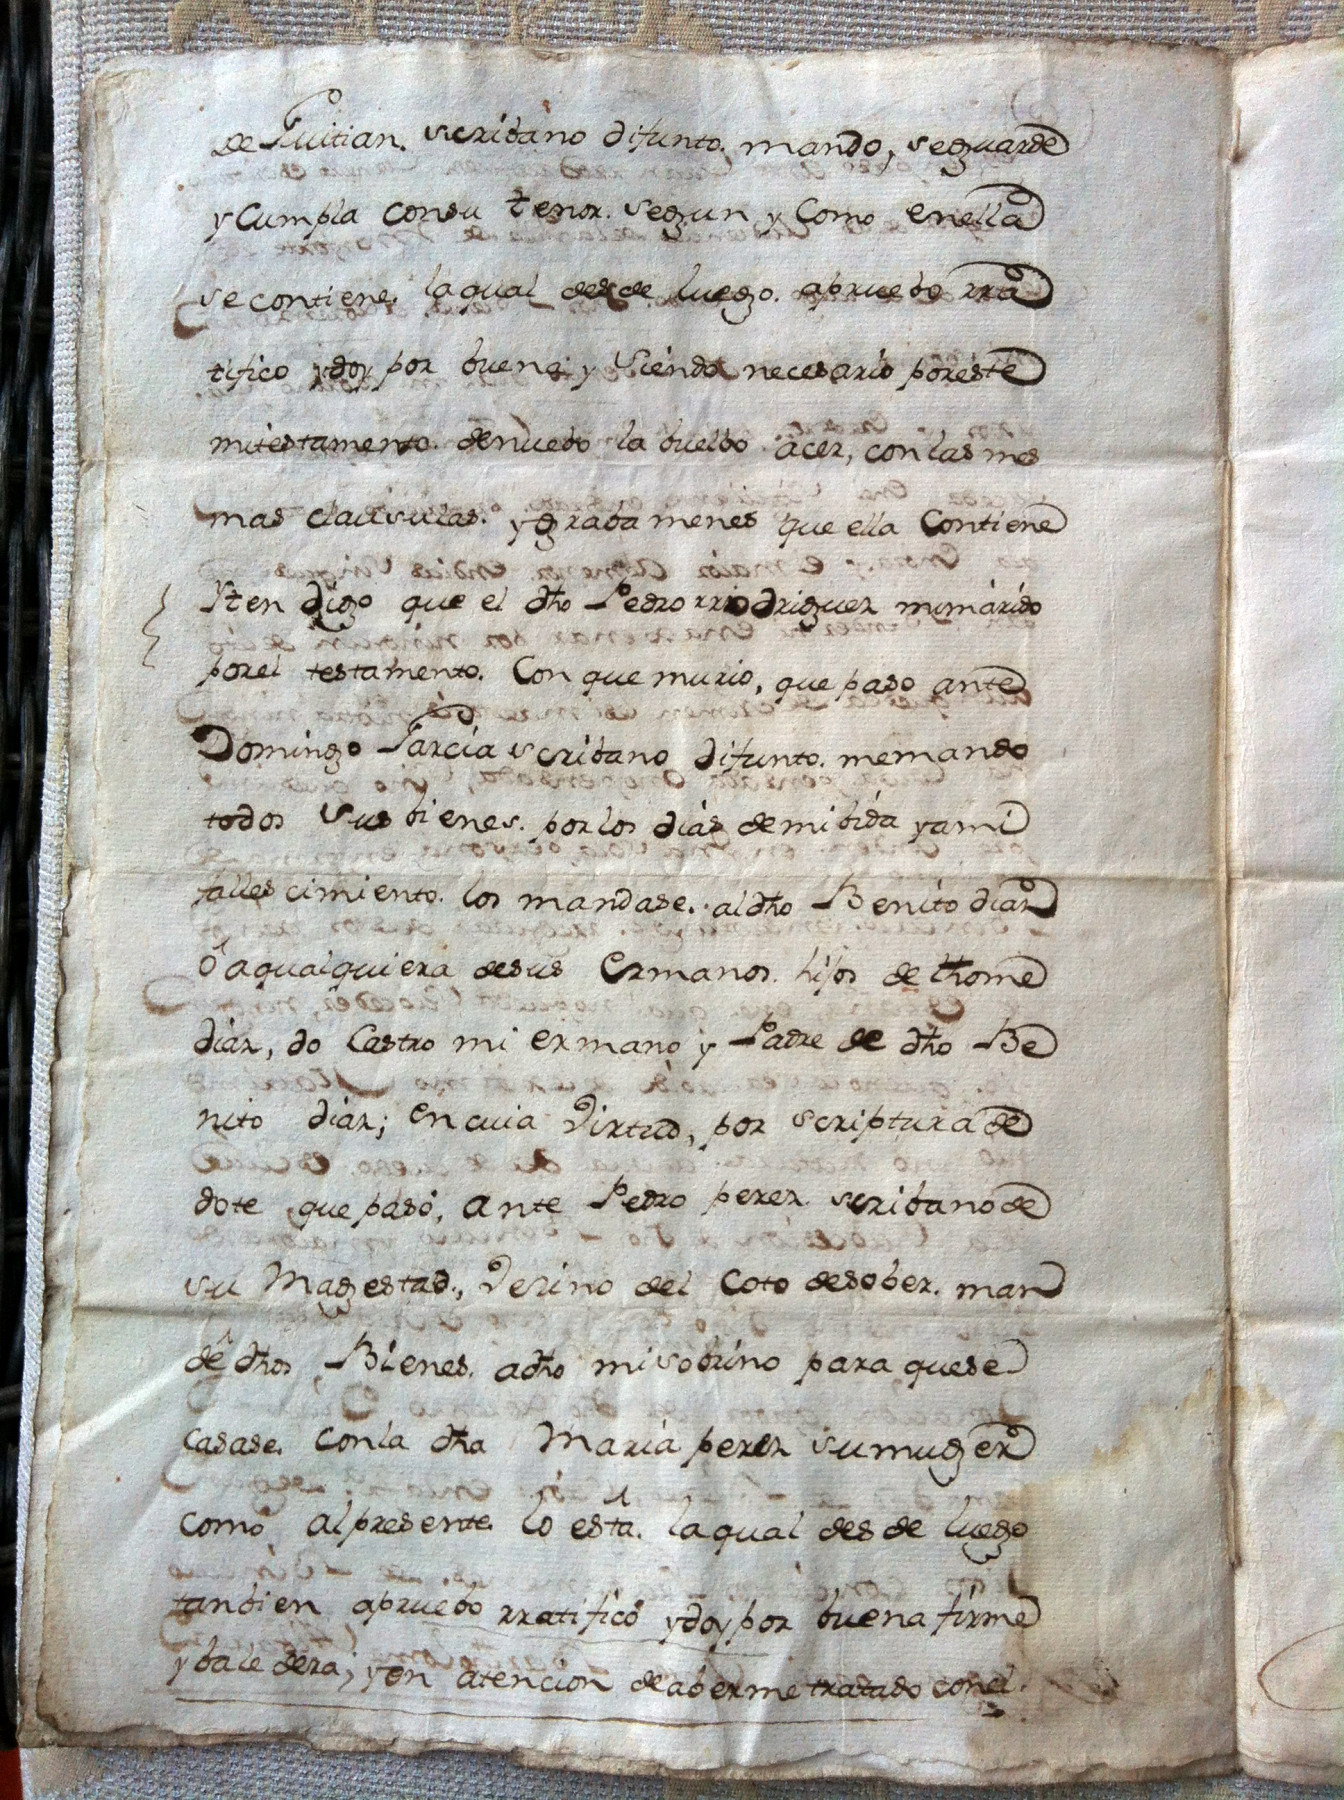 de Guitian. scribano difunto. mando, seguarde
y Cumpla consu tenor. segun y Como enella
se contiene. laqual desde luego. apruebo rra
tifico ydoy por buena y siendo necesario poreste
mitestamento. denuebo la buelbo acer, conlas mes
mas clausulas. ygrabamenes que ella Contiene
Yten digo que el dho Pedro rrodriguez mimarido
porel testamento. Con que murio, que paso ante
Domingo Garcia scribano difunto. memando
todos sus bienes. porlos dias demibida yami
fallescimiento. los mandase. aldho Benito diaz
ô aqualquiera desus Ermanos. hijos de thome
diaz, do Castro mi ermano y Padre de dho Be
nito diaz; encuia Virtud, por scriptura de
dote que pasó, ante Pedro perez scribano de
su Magestad., Verino del Coto desober. man
dê dhos Bienes. adho misobrino para quese
casase. conla dha Maria perez sumuger
como alpresente lo está. laqual desde luego
tanbien apruebo rratifico ydoy por buena firme
y baledera; yen atencion deabermetratado conel.